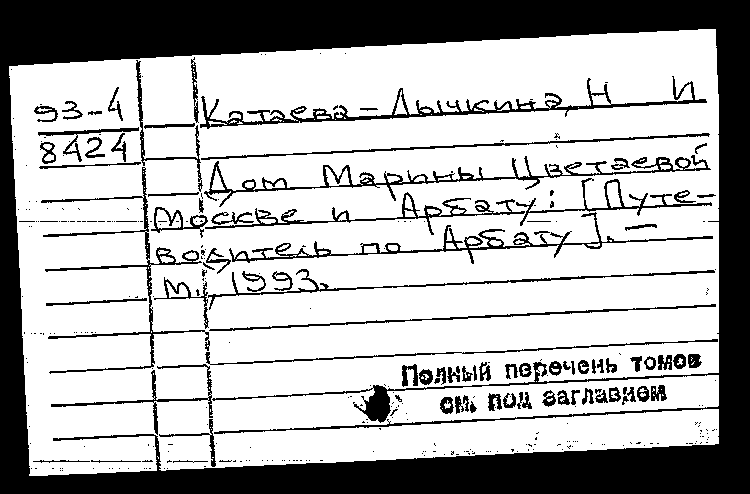 93-4
8424
Катаева-Лычкина, Н И
Дом Марины Цветаевой
Москве и Арбату: [Путе-
водитель по Арбату]. —
М., 1993.
Полный перечень томов
см. под заглавием